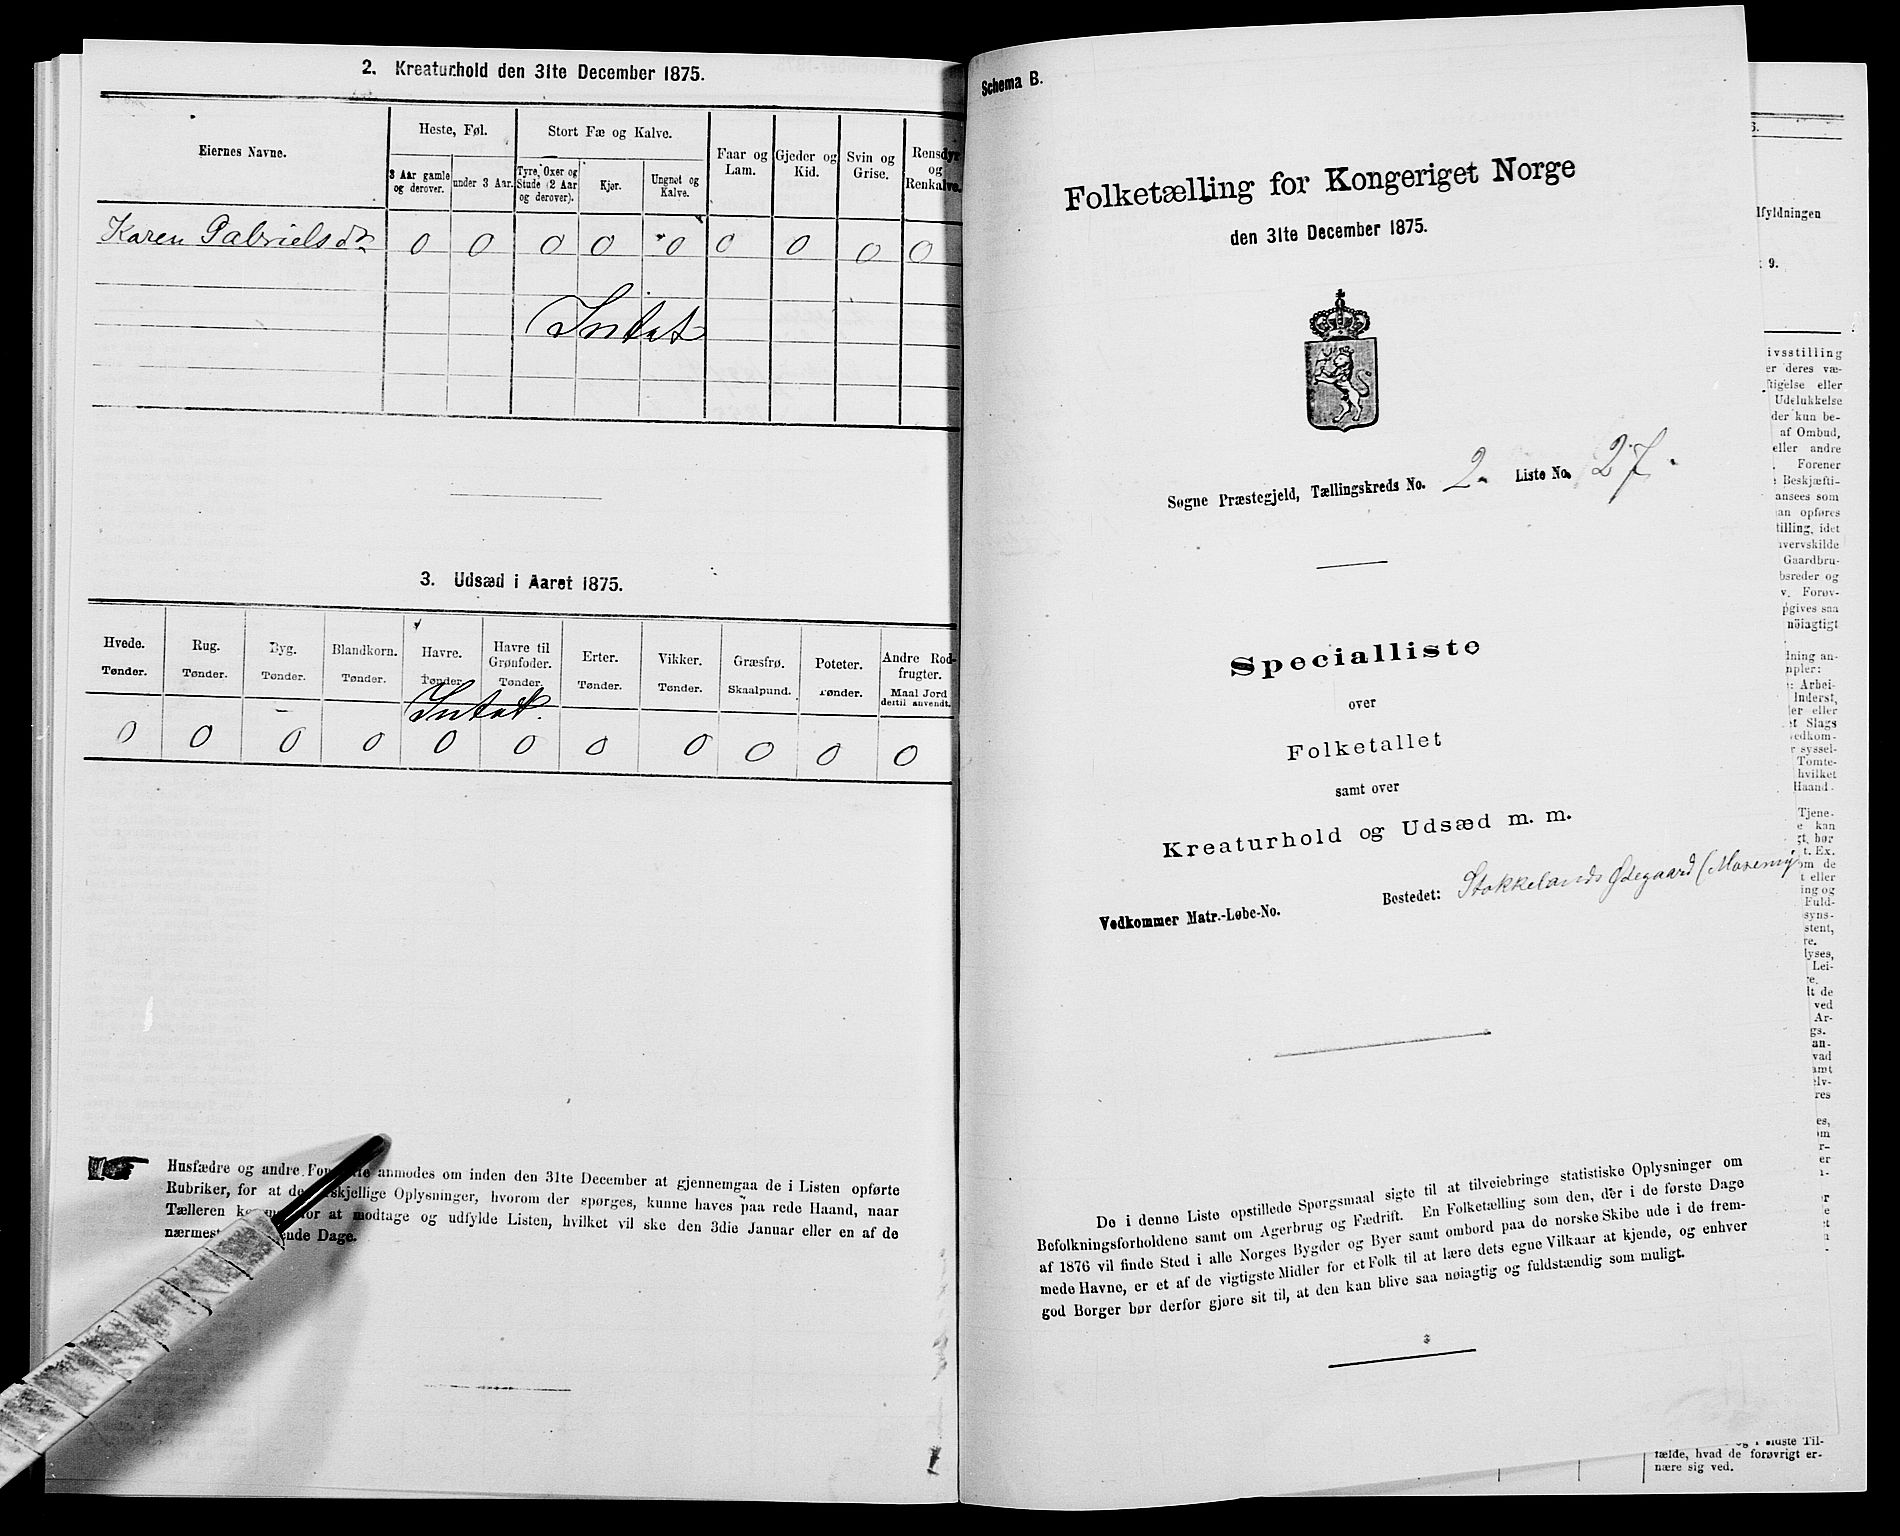 2. Kreaturhold den 31te December 1875.
Eiernes Navne.
Heste, Føl.
Stort Fæ og Kalve.
Faar og Lam.
Gjeder og Kid.
Svin og Grise.
Rensdyr og Renkalve.
3 Aar gamle og derover.
under 3 Aar.
Tyre, Oxer og Stude (2 Aar og derover).
Kjør.
Ungnøt og Kalve.
Karen Gabrielsdr 0 0 0 0 0 0 0 0 0
Intet
3. Udsæd i Aaret 1875.
Hvede. Rug. Byg. Blandkorn. Havre. Havre til Grønfoder. Erter. Vikker. Græsfrø. Poteter. Andre Rodfrugter.
Tønder. Tønder. Tønder. Tønder. Tønder. Tønder. Tønder. Tønder. Skaalpund. Tønder. Maal Jord dertil anvendt.
Intet.
0 0 0 0 0 0 0 0 0 0 0
Husfædre og andre anmodes om inden den 31te December at gjennemgaa de i Listen opførte
Rubriker, for at de skjellige Oplysninger, hvorom der spørges, kunne haves paa rede Haand, naar
Tælleren for at modtage og udfylde Listen, hvilket vil ske den 3die Januar eller en af de
nærmest ende Dage.
Schema B.
Folketælling for Kongeriget Norge
den 31te December 1875.
Søgne Præstegjeld, Tællingskreds No. 2. Liste No. 27.
Specialliste
over
Folketallet
samt over
Kreaturhold og Udsæd m. m.
Bostedet: Stokkelands Ødegaard (Mosemyr
Vedkommer Matr.-Løbe-No.
De i denne Liste opstillede Spørgsmaal sigte til at tilveiebringe statistiske Oplysninger om
Befolkningsforholdene samt om Agerbrug og Fædrift. En Folketælling som den, der i de første Dage
af 1876 vil finde Sted i alle Norges Bygder og Byer samt ombord paa de norske Skibe ude i de frem-
mede Havne, er et af de vigtigste Midler for et Folk til at lære dets egne Vilkaar at kjende, og enhver
god Borger bør derfor gjøre sit til, at den kan blive saa nøiagtig og fuldstændig som muligt.
lfyldningen
9.
ivsstilling
er deres væ-
tigelse eller
Udelukkelse
der kun be-
af Ombud,
eller andre
Forener
Beskjæfti-
ansees som
an opføres
tilling, idet
ivervskilde
Gaardbru-
bsreder og
v. Forøv-
pgives saa
nöiagtigt
dning an-
mpler:
Arbei-
Inderst,
er eller
t Slags
vedkom-
r syssel-
Tomte-
hvilket
Haand.
Tjene-
e kan
gt, bør
t. Ex.
om de
t eller
ing og
Fuld-
syns-
stent,
re.
lyses,
Lei-
re.
lt de
ved
Ar-
gs.
an-
vad
amt
elv-
res
es,
om
r-
er
og i Øidste Til-
tælde, hvad de forøvrigt er-
nære sig ved.